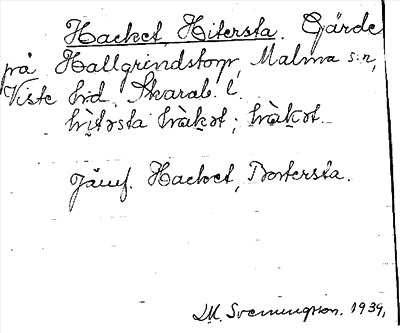 Hacket, Hitersta. Gärde
på Hallgrindstorp, Malma s:n,
Viste hrd. Skarab. l.
hìtəsta hàkət; hàkət.
Jämf. Hacket, Bortersta.
M. Svenningson. 1939.